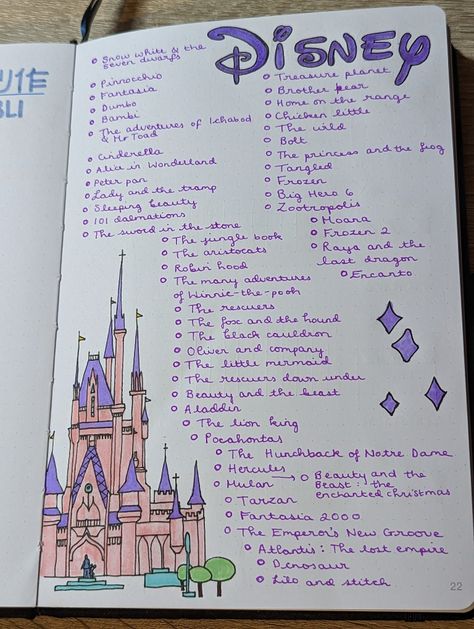 り作
BLI
DISNEY
Snow white & the
seven dwarfs
Pinnocchio
Fantasia
Dumbo
Bambi
The adventures of Ichabod
& Mr Toad
Cinderella
Alice in Wonderland
Peter pan
Lady and the tramp
Sleeping beauty
101 dalmations
The sword in the stone
The jungle book
The aristocats
Robin hood
The many adventures
of Winnie-the-pooh
The rescuers
The fox and the hound
The black cauldron
Oliver and company
The little mermaid
The rescuers down under
Beauty and the beast
Aladdin
The lion king
Pocahontas
The Hunchback of Notre Dame
Hercules
Mulan → Beauty and the
Beast: the
enchanted christmas
Tarzan
Fantasia 2000
The Emperor's New Groove
Atlantis: The lost empire
Dinosaur
Lilo and stitch
Treasure planet
Brother bear
Home on the range
Chicken little
The wild
Bolt
The princess and the frog
Tangled
Frozen
Big Hero 6
Zootropolis
Moana
Frozen 2
Raya and the
last dragon
Encanto
22